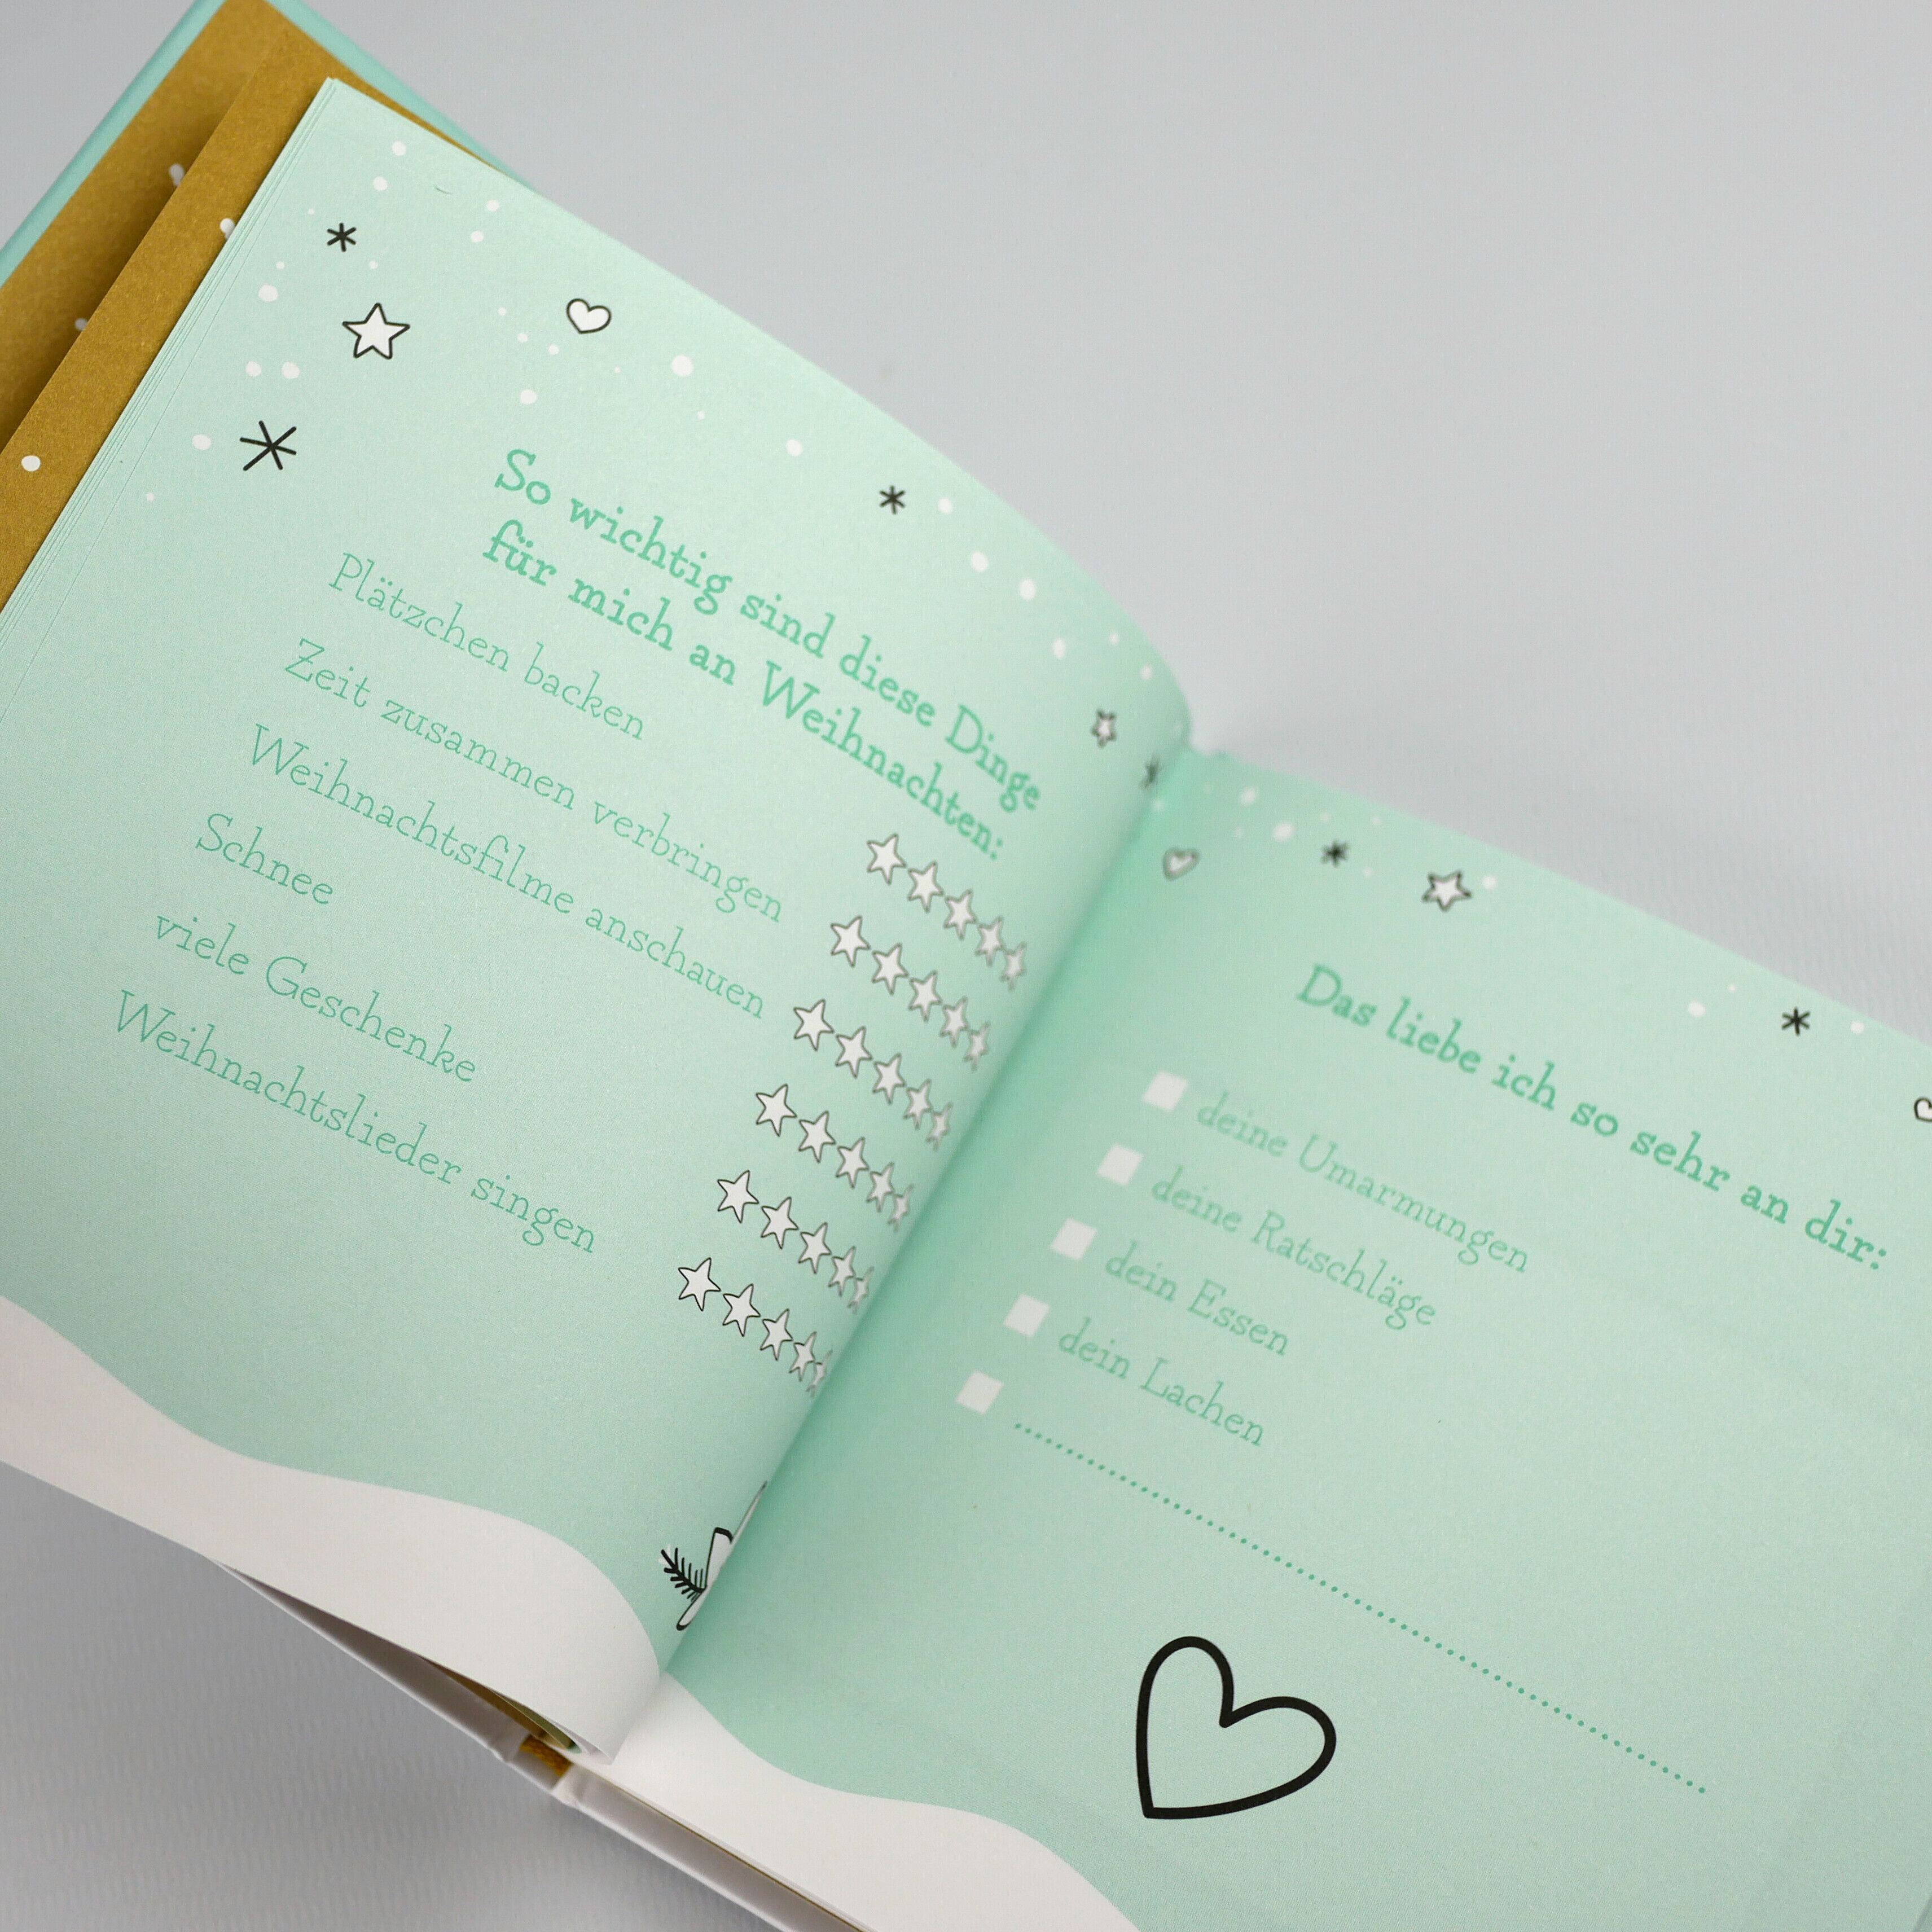 So wichtig sind diese Dinge
für mich an Weihnachten:
Plätzchen backen
Zeit zusammen verbringen
Weihnachtsfilme anschauen
Schnee
viele Geschenke
Weihnachtslieder singen
Das liebe ich so sehr an dir:
deine Umarmungen
deine Ratschläge
dein Essen
dein Lachen